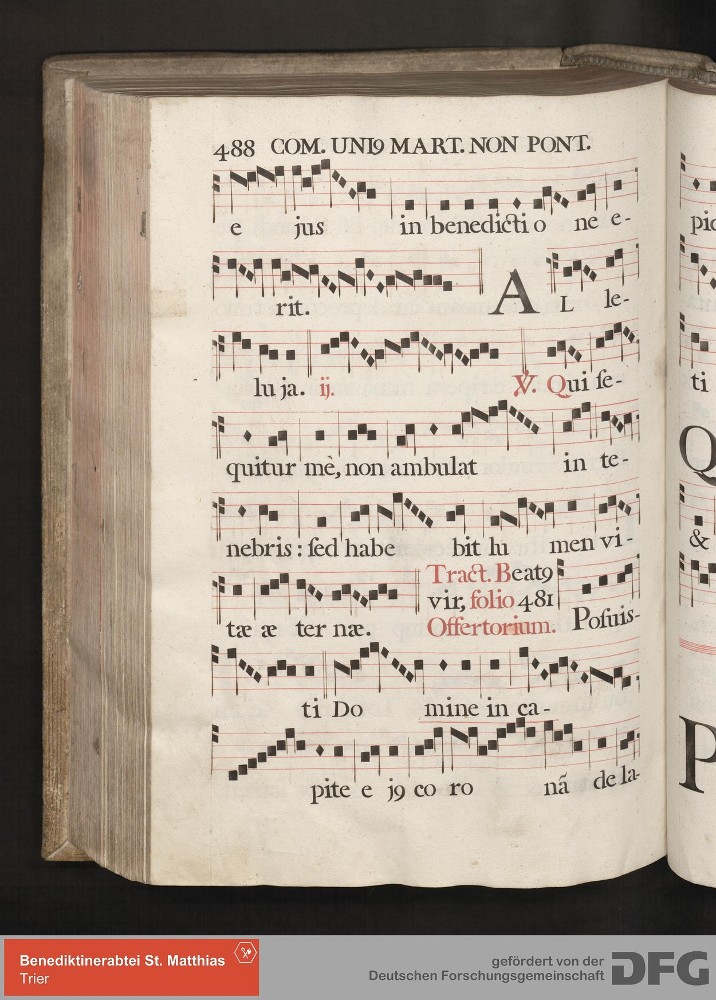 488 COM. UNI9 MART. NON PONT.
e jus in benedictio ne e-
rit. A L le-
lu ja. ij. ℣. Qui se-
quitur mè, non ambulat in te-
nebris: sed habe bit lu men vi-
tæ æ ter næ. Tract. Beat9
vir, folio 481
Offertorium. Posuis-
ti Do mine in ca-
pite e j9 co ro nã de la-
pic
ti
Q
&
P
Benediktinerabtei St. Matthias
Trier
gefördert von der
Deutschen Forschungsgemeinschaft DFG